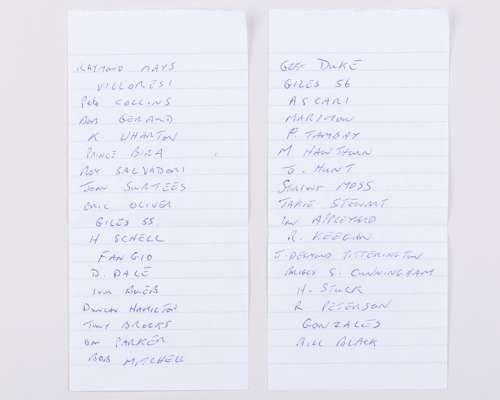 RAYMOND MAYS
VILLORESI
Pete COLLINS
BOB GERARD
K. WHARTON
PRINCE BIRA
ROY SALVADORI
JOHN SURTEES
ERIC OLIVER
GILES 55
H SCHELL
FANGIO
D. DALE
IVOR BUEB
DUNCAN HAMILTON
TONY BROOKS
DON PARKER
BOB MITCHELL
GEFF DUKE
GILES 56
ASCARI
MARIMON
P. TAMBAY
M HAWTHORN
J. HUNT
STIRLING MOSS
JAKIE STEWART
IAN APPLEYARD
R. KEEGAN
J. DESMOND TITTERINGTON
BRIGGS S. CUNNINGHAM
H. STUCK
R PETERSON
GONZALES
BILL BLACK